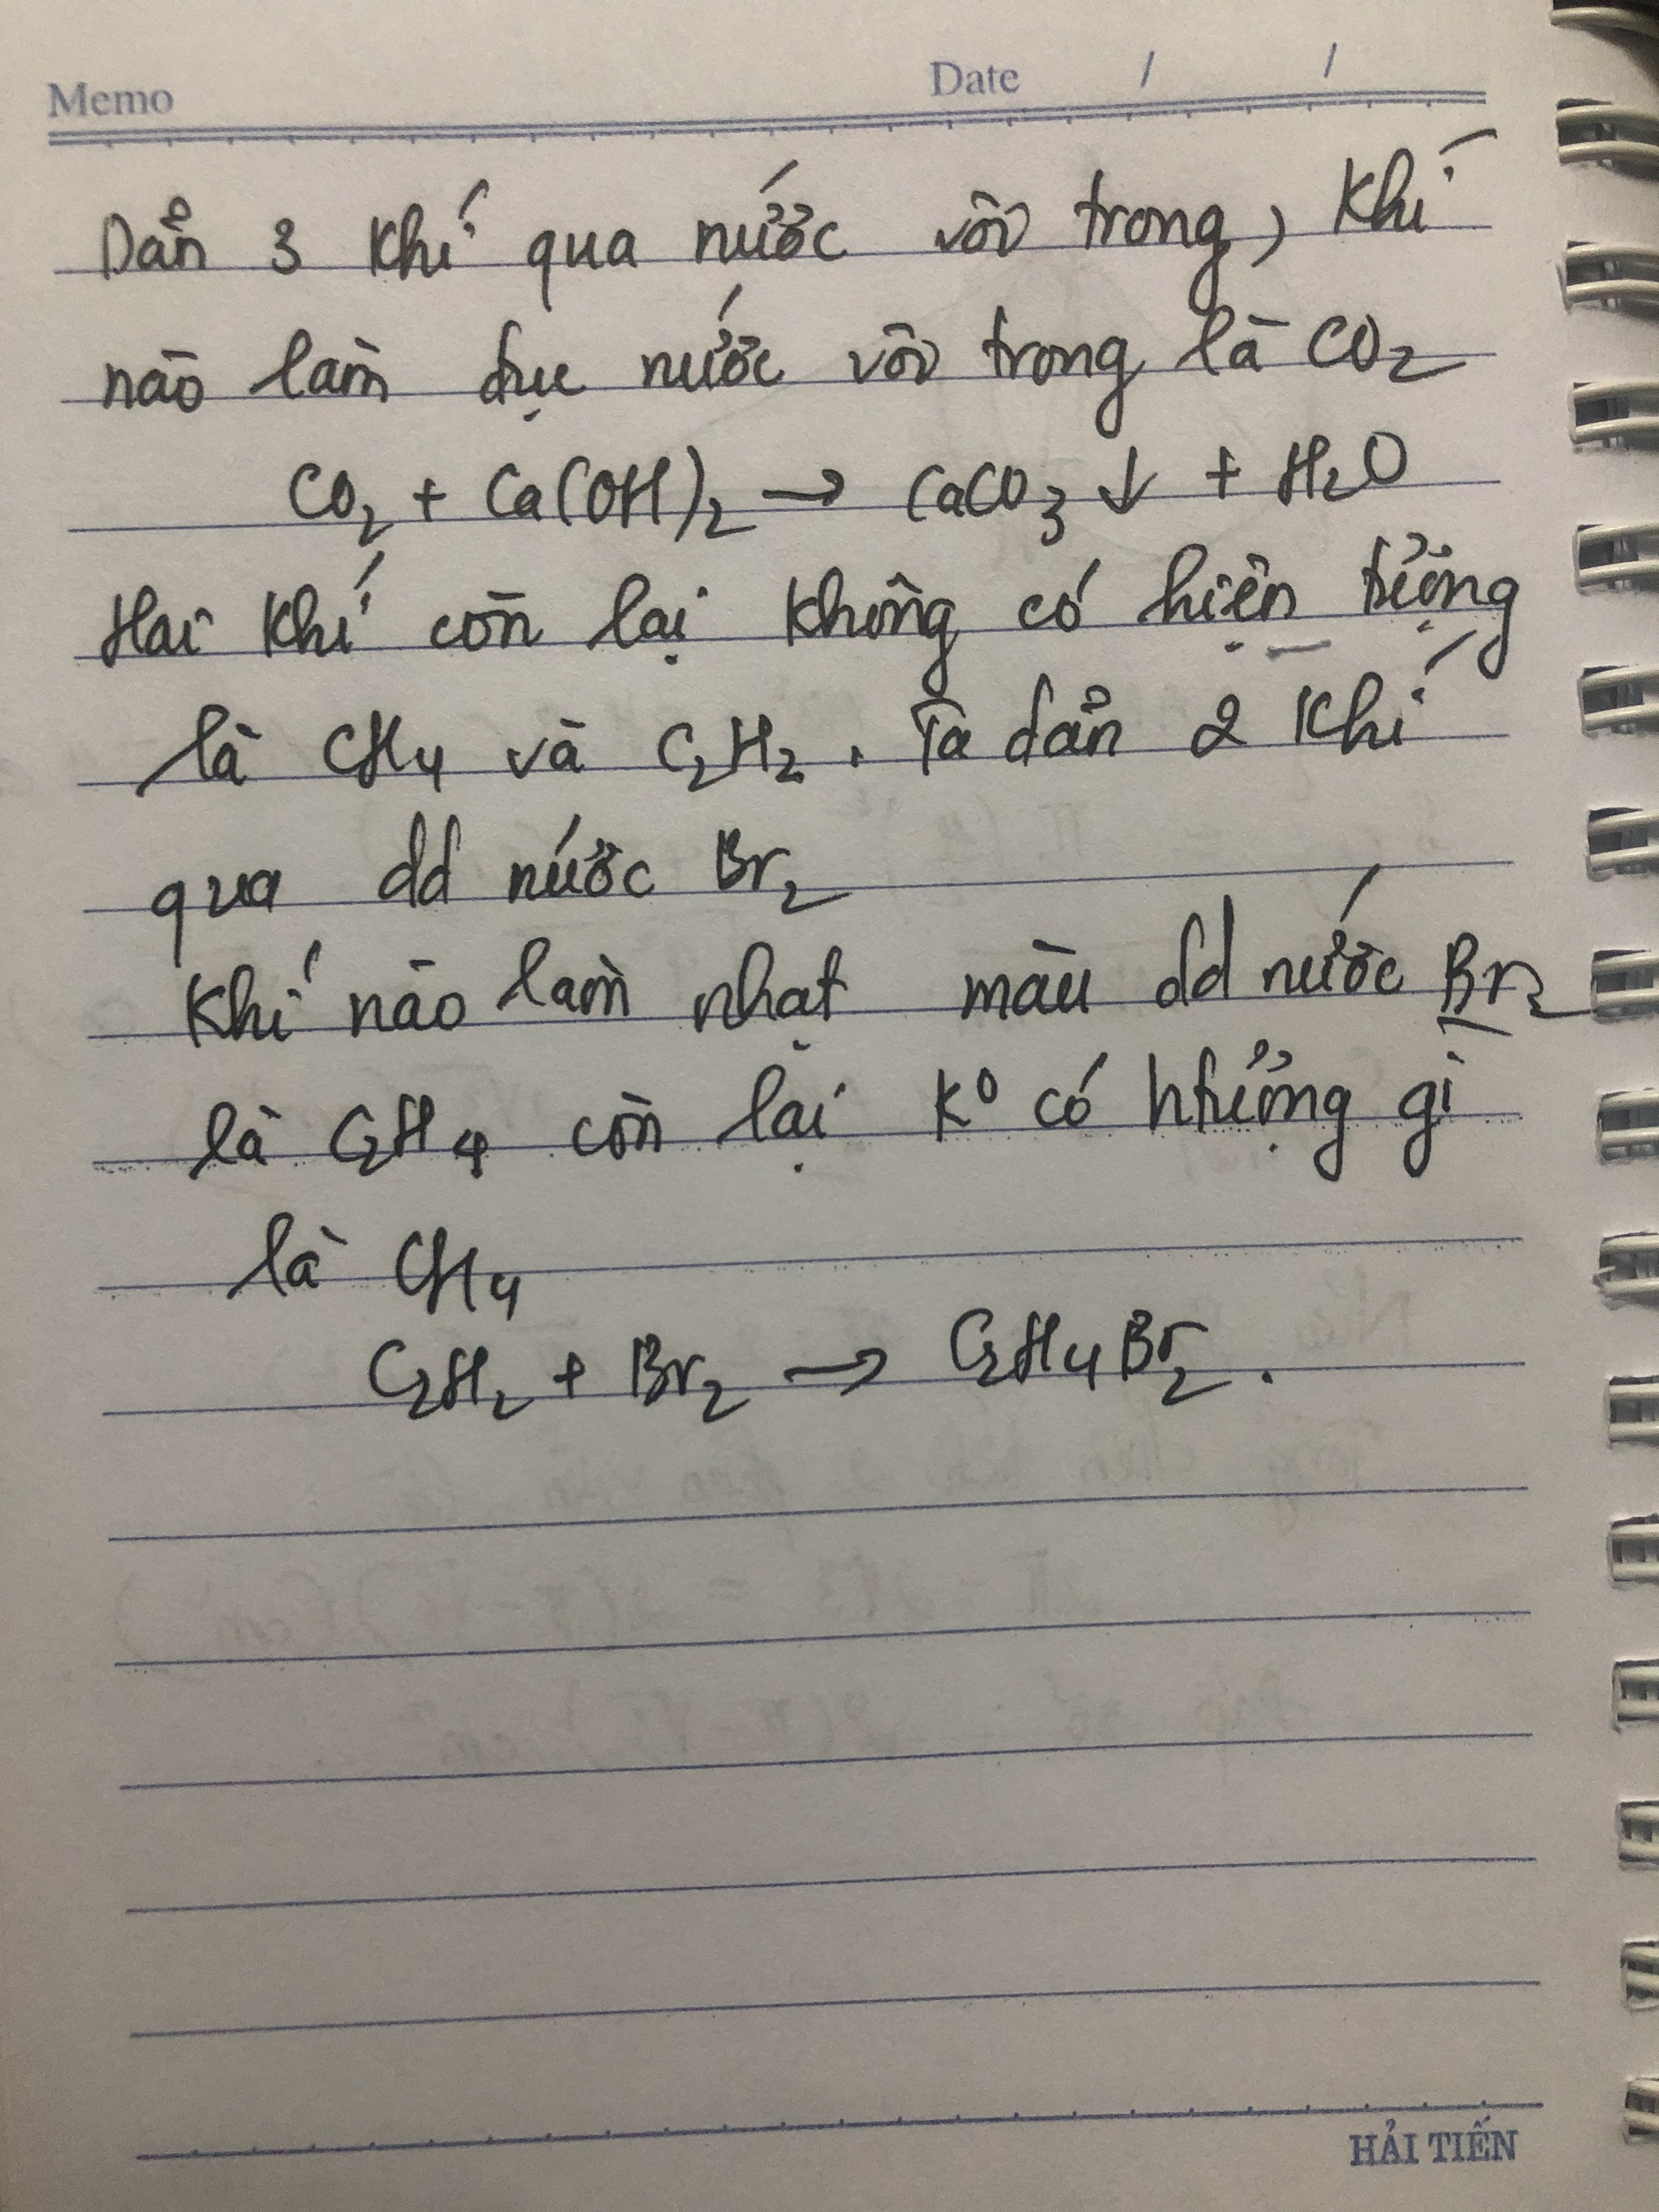 Memo Date / /
Dẩn 3 khí qua nước vôi trong, khí
nào làm đục nước vôi trong là CO₂
CO₂ + Ca(OH)₂ → CaCO₃ ↓ + H₂O
Hai khí còn lại không có hiện tượng
là CH₄ và C₂H₂. Ta dẩn 2 khí
qua dd nước Br₂
Khí nào làm nhạt màu dd nước Br₂
là C₂H₄ còn lại k⁰ có htượng gì
là CH₄
C₂H₂ + Br₂ → C₂H₄Br₂.
HẢI TIẾN